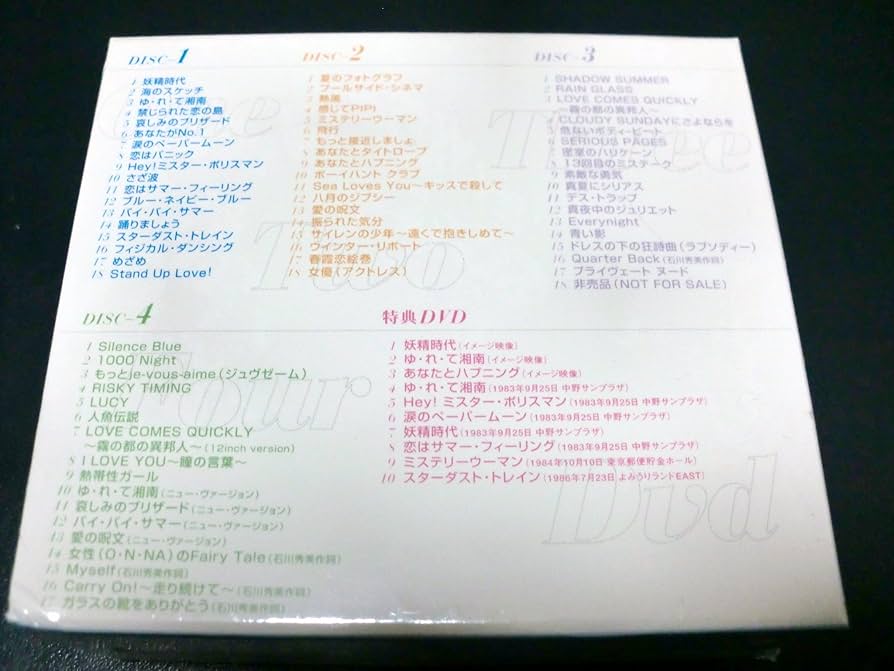 DISC-1
1 妖精時代
2 海のスケッチ
3 ゆ・れ・て湘南
4 禁じられた恋の島
5 哀しみのブリザード
6 あなたがNo.1
7 涙のペーパームーン
8 恋はパニック
9 Hey!ミスター・ポリスマン
10 さざ波
11 恋はサマー・フィーリング
12 ブルー・ネイビー・ブルー
13 バイ・バイ・サマー
14 踊りましょう
15 スターダスト・トレイン
16 フィジカル・ダンシング
17 めざめ
18 Stand Up Love!
DISC-2
1 夏のフォトグラフ
2 プールサイド・シネマ
3 熱風
4 感じてPIPI
5 ミステリーウーマン
6 飛行
7 もっと接近しましょ
8 あなたとタイトロープ
9 あなたとハプニング
10 ボーイハント クラブ
11 Sea Loves You〜キッスで殺して
12 八月のジプシー
13 愛の呪文
14 振られた気分
15 サイレンの少年〜遠くで抱きしめて〜
16 ウインター・リポート
17 春霞恋絵巻
18 女優(アクトレス)
DISC-3
1 SHADOW SUMMER
2 RAIN GLASS
3 LOVE COMES QUICKLY
〜霧の都の異邦人〜
4 CLOUDY SUNDAYにさよならを
5 危ないボディ・ビート
6 SERIOUS PAGES
7 密室のハリケーン
8 13回目のミステーク
9 素敵な勇気
10 真夏にシリアス
11 デス・トラップ
12 真夜中のジュリエット
13 Everynight
14 青い影
15 ドレスの下の狂詩曲(ラプソディー)
16 Quarter Back(石川秀美作詞)
17 プライヴェート ヌード
18 非売品(NOT FOR SALE)
DISC-4
1 Silence Blue
2 1000 Night
3 もっとje-vous-aime(ジュヴゼーム)
4 RISKY TIMING
5 LUCY
6 人魚伝説
7 LOVE COMES QUICKLY
〜霧の都の異邦人〜(12inch version)
8 I LOVE YOU〜瞳の言葉〜
9 熱帯性ガール
10 ゆ・れ・て湘南(ニュー・ヴァージョン)
11 哀しみのブリザード(ニュー・ヴァージョン)
12 バイ・バイ・サマー(ニュー・ヴァージョン)
13 愛の呪文(ニュー・ヴァージョン)
14 女性(O・N・NA)のFairy Tale(石川秀美作詞)
15 Myself(石川秀美作詞)
16 Carry On!〜走り続けて〜(石川秀美作詞)
17 ガラスの靴をありがとう(石川秀美作詞)
特典DVD
1 妖精時代(イメージ映像)
2 ゆ・れ・て湘南(イメージ映像)
3 あなたとハプニング(イメージ映像)
4 ゆ・れ・て湘南(1983年9月25日 中野サンプラザ)
5 Hey! ミスター・ポリスマン(1983年9月25日 中野サンプラザ)
6 涙のペーパームーン(1983年9月25日 中野サンプラザ)
7 妖精時代(1983年9月25日 中野サンプラザ)
8 恋はサマー・フィーリング(1983年9月25日 中野サンプラザ)
9 ミステリーウーマン(1984年10月10日 東京郵便貯金ホール)
10 スターダスト・トレイン(1986年7月23日 よみうりランドEAST)
One
Two
Three
Four
Dvd